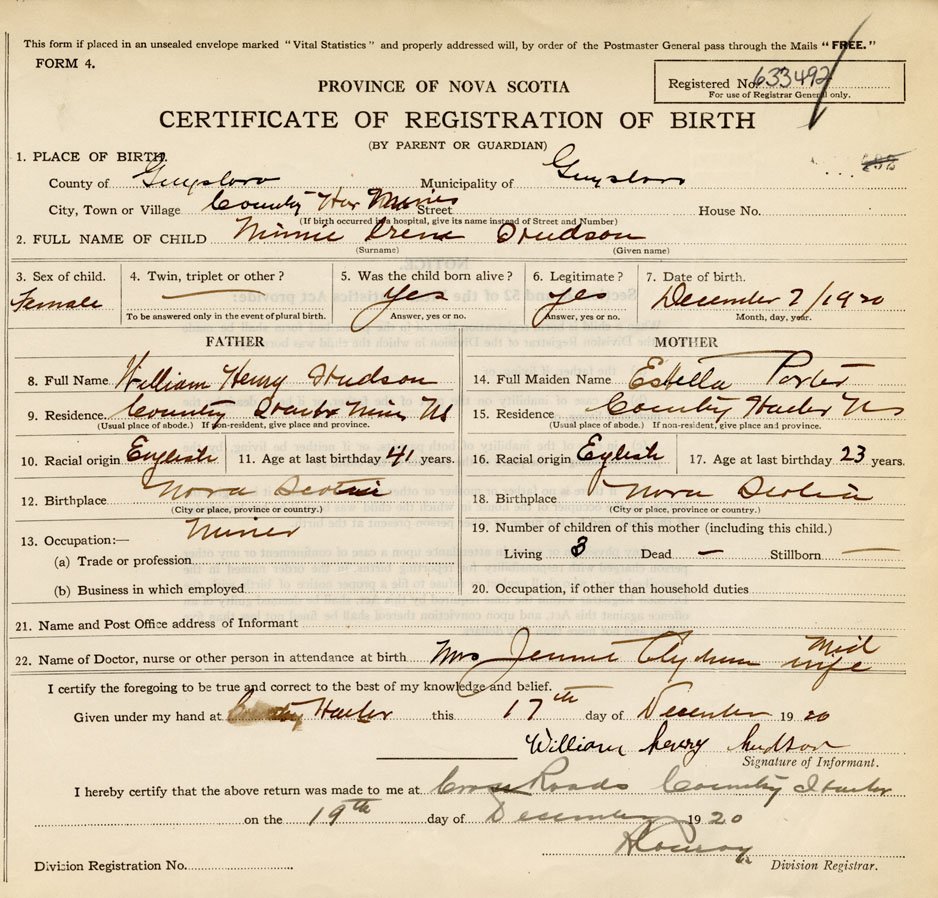 This form if placed in an unsealed envelope marked "Vital Statistics" and properly addressed will, by order of the Postmaster General pass through the Mails "FREE."
FORM 4.
Registered No. 633492
For use of Registrar General only.
PROVINCE OF NOVA SCOTIA
CERTIFICATE OF REGISTRATION OF BIRTH
(BY PARENT OR GUARDIAN)
1. PLACE OF BIRTH.
County of Guysboro Municipality of Guysboro
City, Town or Village Country Har Mines Street House No.
(If birth occurred in a hospital, give its name instead of Street and Number)
2. FULL NAME OF CHILD Minnie Irene Hudson
(Surname) (Given name)
3. Sex of child. 4. Twin, triplet or other? 5. Was the child born alive? 6. Legitimate? 7. Date of birth.
Female — yes yes December 7/1920
To be answered only in the event of plural birth. Answer, yes or no. Answer, yes or no. Month, day, year.
FATHER MOTHER
8. Full Name William Henry Hudson 14. Full Maiden Name Estella Porter
9. Residence. Country Harbor Mines NS 15. Residence Country Harbor NS
(Usual place of abode.) If non-resident, give place and province. (Usual place of abode.) If non-resident, give place and province.
10. Racial origin English 11. Age at last birthday 41 years. 16. Racial origin English 17. Age at last birthday 23 years.
12. Birthplace Nova Scotia 18. Birthplace Nova Scotia
(City or place, province or country.) (City or place, province or country.)
13. Occupation:— Miner 19. Number of children of this mother (including this child.)
(a) Trade or profession Living 3 Dead — Stillborn —
(b) Business in which employed 20. Occupation, if other than household duties
21. Name and Post Office address of Informant
22. Name of Doctor, nurse or other person in attendance at birth Mrs Jennie Mid wife
I certify the foregoing to be true and correct to the best of my knowledge and belief.
Given under my hand at Country Harbor this 17th day of December 1920
William henry hudson
Signature of Informant.
I hereby certify that the above return was made to me at Cross Roads Country Harbor
on the 19th day of December 1920
Division Registration No. Division Registrar.